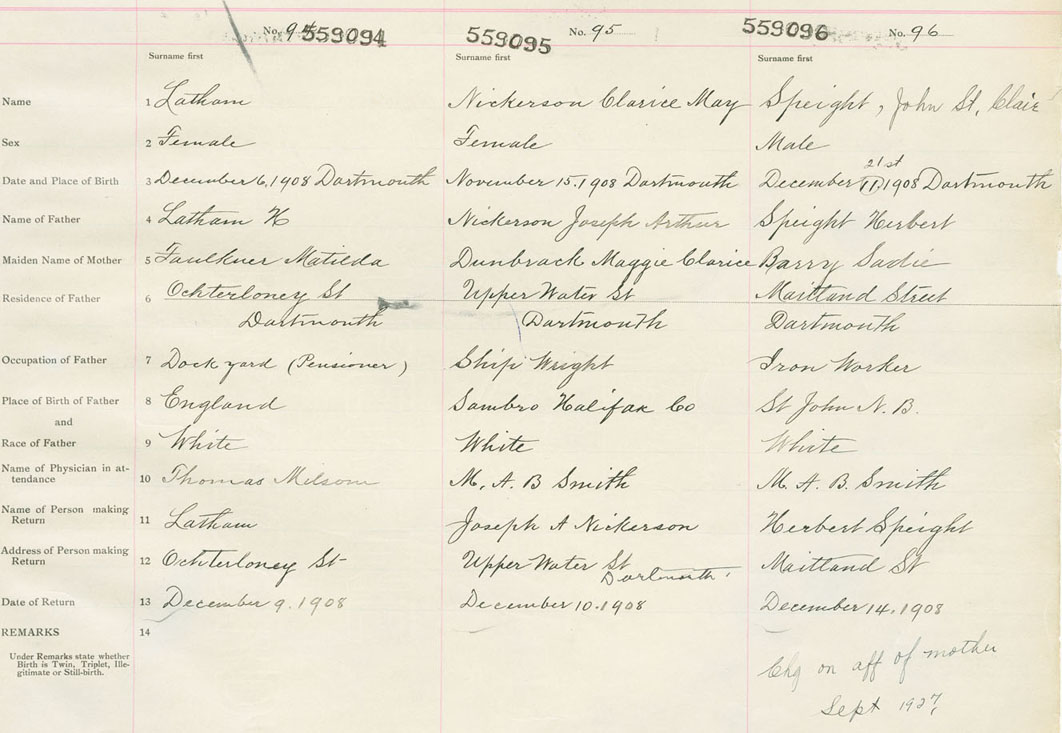 No. 94 559094 559095 No. 95 559096 No. 96
Surname first Surname first Surname first
Name 1 Latham Nickerson Clarice May Speight, John St. Clair
Sex 2 Female Female Male
21st
Date and Place of Birth 3 December 6, 1908 Dartmouth November 15. 1908 Dartmouth December 11, 1908 Dartmouth
Name of Father 4 Latham H Nickerson Joseph Arthur Speight Herbert
Maiden Name of Mother 5 Faulkner Matilda Dunbrack Maggie Clarice Barry Sadie
Residence of Father 6 Ochterloney St Upper Water St Maitland Street
Dartmouth Dartmouth Dartmouth
Occupation of Father 7 Dock yard (Pensioner) Ship Wright Iron Worker
Place of Birth of Father 8 England Sambro Halifax Co St John N. B.
and
Race of Father 9 White White White
Name of Physician in at-
tendance 10 Thomas Milsom M. A. B Smith M. A. B. Smith
Name of Person making
Return 11 Latham Joseph A Nickerson Herbert Speight
Address of Person making
Return 12 Ochterloney St Upper Water St Maitland St
Dartmouth
Date of Return 13 December 9. 1908 December 10. 1908 December 14. 1908
REMARKS 14
Under Remarks state whether
Birth is Twin, Triplet, Ille-
gitimate or Still-birth.
Chg on aff of mother
Sept 1927